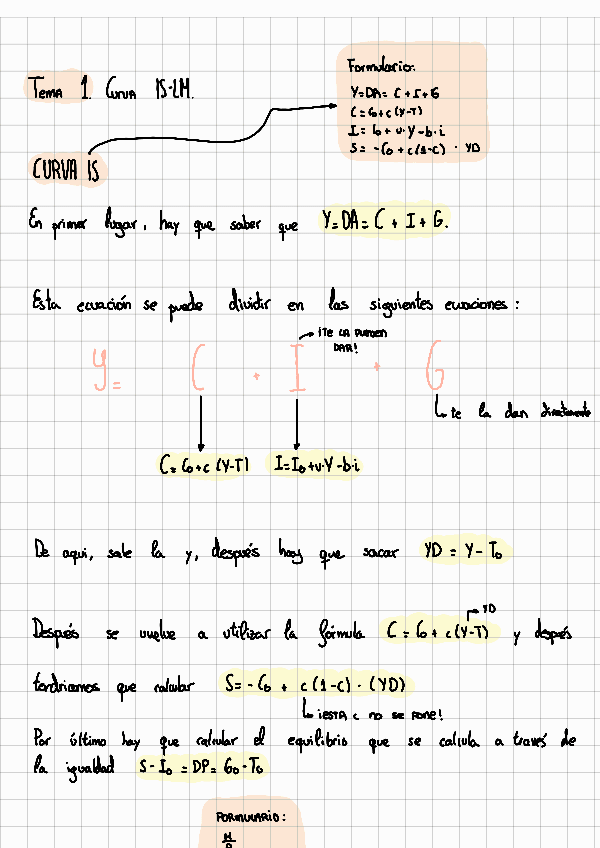 Tema 1. Curva IS-LM.
Formulario:
Y=DA= C+I+G
C=C₀+c(Y-T)
I= I₀+v·Y-b·i
S= -C₀+c(1-c) · YD
CURVA IS
En primer lugar, hay que saber que Y=DA=C+I+G.
Esta ecuación se puede dividir en las siguientes ecuaciones:
¡TE LA PUEDEN
DAR!
Y= C + I + G
te la dan directamente
C=C₀+c(Y-T) I=I₀+v·Y-b·i
De aqui, sale la y, después hay que sacar YD = Y-T₀
YD
Después se vuelve a utilizar la fórmula C=C₀+c(Y-T) y después
tendriamos que calcular S=-C₀ + c(1-c)·(YD)
¡ESTA C NO SE PONE!
Por último hay que calcular el equilibrio que se calcula a través de
la igualdad S-I₀=DP=G₀-T₀
FORMULARIO:
M
P